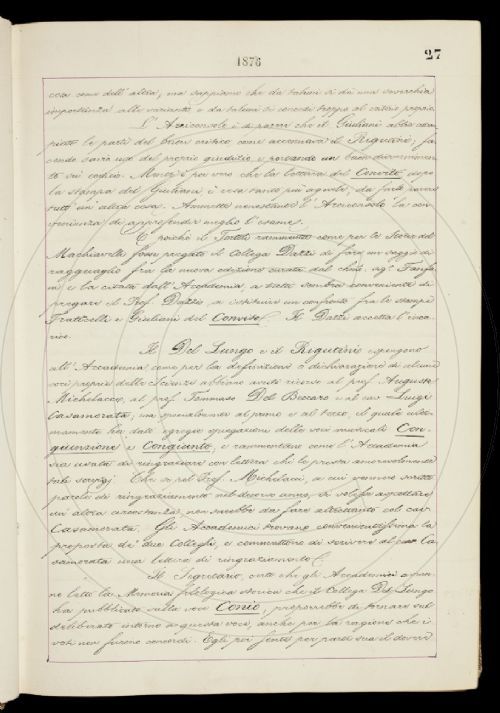 27
1876
cosa come dell'altra; ma sappiamo che da taluni si dà una soverchia
importanza alle varianti e da taluni si concede troppo al criterio proprio.
L'Arciconsolo è di parere che il Giuliani abbia com
piuto le parti del buon critico come accennava il Rigutini, fa
cendo savio uso del proprio giudizio e portando un buon discernimen
to sui codici. Mentr'è pur vero che la lettura del Convito, dopo
la stampa del Giuliani è resa tanto più agevole, da farlo parere
tutt'un'altra cosa. Ammette nonostante l'Arciconsolo la con
venienza di approfondir meglio l'esame.
E poichè il Tortoli rammenta come per le Storie del
Machiavelli fosse pregato il Collega Dazzi di fare un saggio di
ragguaglio fra la nuova edizione curata dal sigr. Fanfa
ni e la citata dall'Accademia, a tutti sembra conveniente di
pregare il Prof. Dazzi, a istituire un confronto fra le stampe
Fraticelli e Giuliani del Convito. Il Dazzi accetta l'inca
rico.
Il Del Lungo e il Rigutini espongono
all'Accademia come per la definizione o dichiarazione di alcune
voci proprie delle Scienze abbiano avuto ricorso al prof. Augusto
Michelacci, al prof. Tommaso Del Beccaro e al cav. Luigi
Casamorata, ma specialmente al primo e al terzo, il quale ulti
mamente ha dato egregie spiegazioni delle voci musicali Con
giunzione e Congiunto, e rammentano come l'Accademia
sia usata di ringraziare con lettera chi le presta amorevolmente
tali servigj. Che se pel Prof. Michelacci, a cui vennero scritte
parole di ringraziamento nel decorso anno, si volesse aspettare
un'altra circostanza, non sarebbe da fare altrettanto col cav.
Casamorata. Gli Accademici trovano convenientissima la
proposta de' due Colleghi, e commettono di scrivere al cav. Ca
samorata una lettera di ringraziamento.
Il Segretario, certo che gli Accademici
no letto la Memoria filologica storica che il Collega Del Lungo
ha pubblicato sulla voce Conio, proporrebbe di tornare sul
deliberato intorno a questa voce, anche per la ragione che i
voti non furono concordi. Egli poi sente per parte sua il dovere